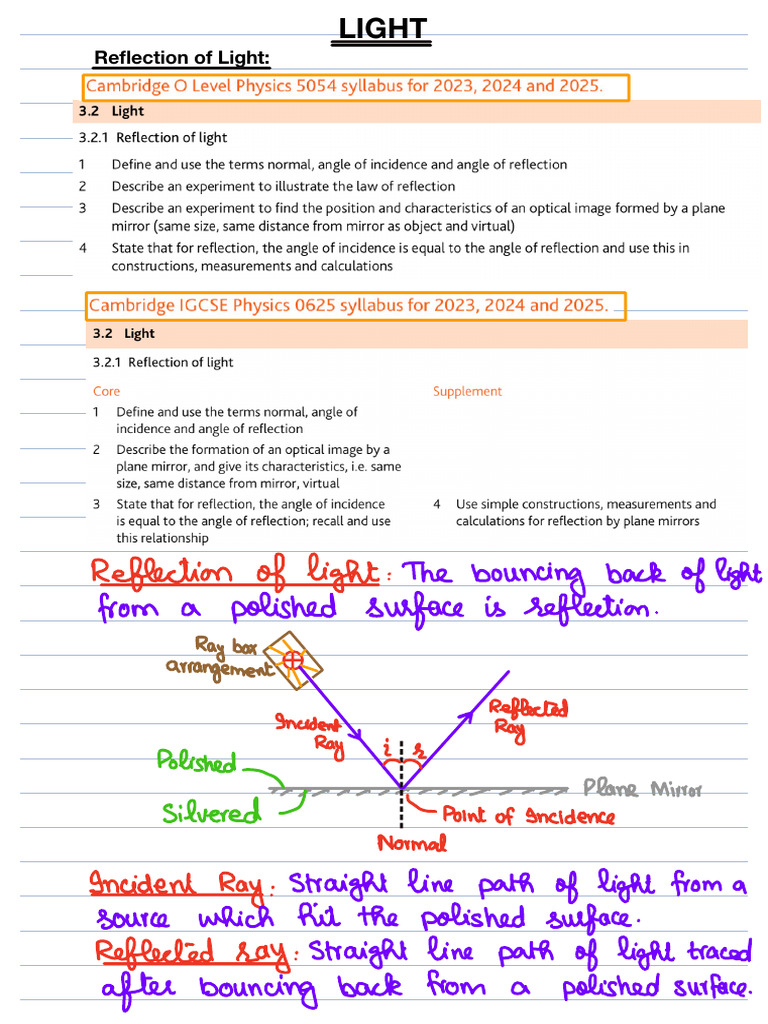 LIGHT
Reflection of Light:
Cambridge O Level Physics 5054 syllabus for 2023, 2024 and 2025.
3.2 Light
3.2.1 Reflection of light
1 Define and use the terms normal, angle of incidence and angle of reflection
2 Describe an experiment to illustrate the law of reflection
3 Describe an experiment to find the position and characteristics of an optical image formed by a plane
mirror (same size, same distance from mirror as object and virtual)
4 State that for reflection, the angle of incidence is equal to the angle of reflection and use this in
constructions, measurements and calculations
Cambridge IGCSE Physics 0625 syllabus for 2023, 2024 and 2025.
3.2 Light
3.2.1 Reflection of light
Core
1 Define and use the terms normal, angle of
incidence and angle of reflection
2 Describe the formation of an optical image by a
plane mirror, and give its characteristics, i.e. same
size, same distance from mirror, virtual
3 State that for reflection, the angle of incidence
is equal to the angle of reflection; recall and use
this relationship
Supplement
4 Use simple constructions, measurements and
calculations for reflection by plane mirrors
Reflection of light: The bouncing back of light
from a polished surface is reflection.
Ray box
arrangement
Incident
Ray
i
r
Reflected
Ray
Polished
Silvered
Plane Mirror
Point of Incidence
Normal
Incident Ray: Straight line path of light from a
source which hit the polished surface.
Reflected ray: Straight line path of light traced
after bouncing back from a polished surface.